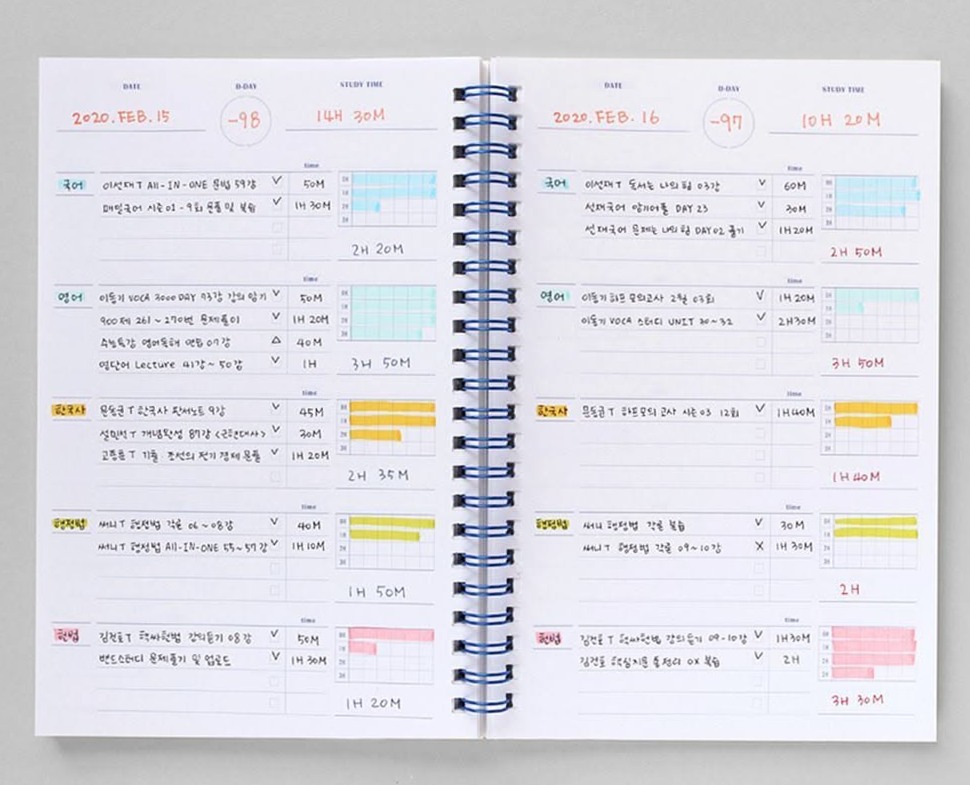 DATE D-DAY STUDY TIME
2020. FEB. 15 -98 14H 30M
time
국어 이선재T All-IN-ONE 문법 59강 V 50M
매일국어 시즌01 - 9회 문풀 및 복습 V 1H 30M
2H 20M
time
영어 이동기 VOCA 3000 DAY 93강 강의 암기 V 50M
900제 261~270번 문제풀이 V 1H 20M
수능특강 영어독해 연습 07강 △ 40M
영단어 Lecture 41강~50강 V 1H
3H 50M
time
한국사 문동균T 한국사 판서노트 9강 V 45M
설민석T 개념완성 87강 <근현대사> V 30M
고종훈T 기출 조선의 전기 경제 문풀 V 1H 20M
2H 35M
time
행정법 써니T 행정법 각론 06~08강 V 40M
써니T 행정법 All-IN-ONE 55~57강 V 1H 10M
1H 50M
time
헌법 김건호T 헌법 강의듣기 08강 V 50M
밴드스터디 문제풀기 및 업로드 V 1H 30M
1H 20M
DATE D-DAY STUDY TIME
2020. FEB. 16 -97 10H 20M
time
국어 이선재T 독서는 나의 힘 03강 V 60M
선재국어 암기어플 DAY 23 V 30M
선재국어 문제는 나의 힘 DAY 02 풀기 V 1H 20M
2H 50M
time
영어 이동기 하프 모의고사 2월 03회 V 1H 20M
이동기 VOCA 스터디 UNIT 30~32 V 2H 30M
3H 50M
time
한국사 문동균T 하프모의고사 시즌03 12회 V 1H 40M
1H 40M
time
행정법 써니 행정법 각론 복습 V 30M
써니T 행정법 각론 09~10강 X 1H 30M
2H
time
헌법 김건호T 헌법 강의듣기 09-10강 V 1H 30M
김건호 OX 복습 V 2H
3H 30M